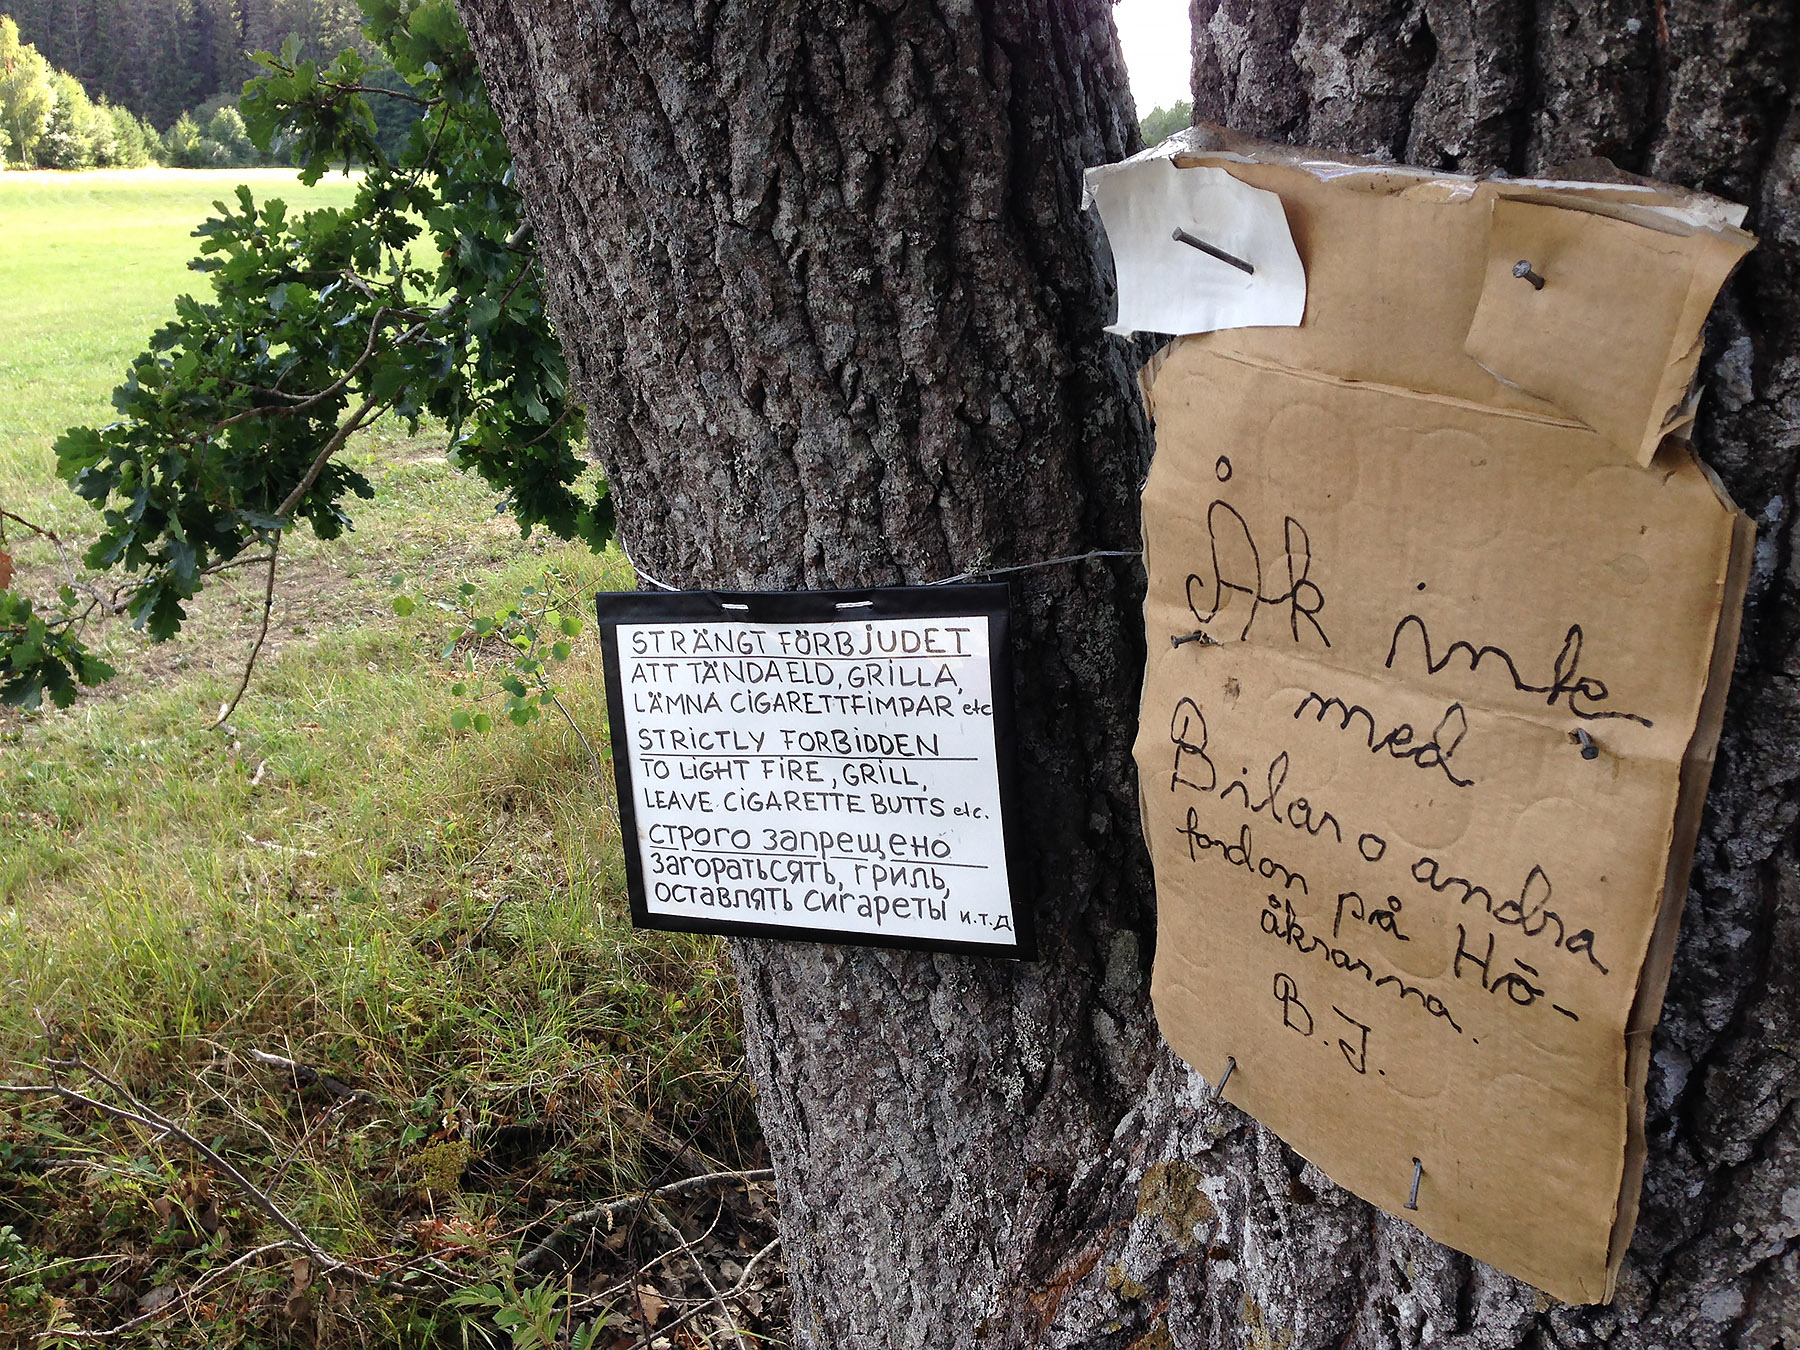 STRÄNGT FÖRBJUDET
ATT TÄNDA ELD, GRILLA,
LÄMNA CIGARETTFIMPAR etc
STRICTLY FORBIDDEN
TO LIGHT FIRE, GRILL,
LEAVE CIGARETTE BUTTS etc.
СТРОГО ЗАПРЕЩЕНО
ЗАГОРАТЬСЯТЬ, ГРИЛЬ,
ОСТАВЛЯТЬ СИГАРЕТЫ И.Т.Д
Åk inte
med
Bilar o andra
fordon på Hö-
åkrarna.
B.J.